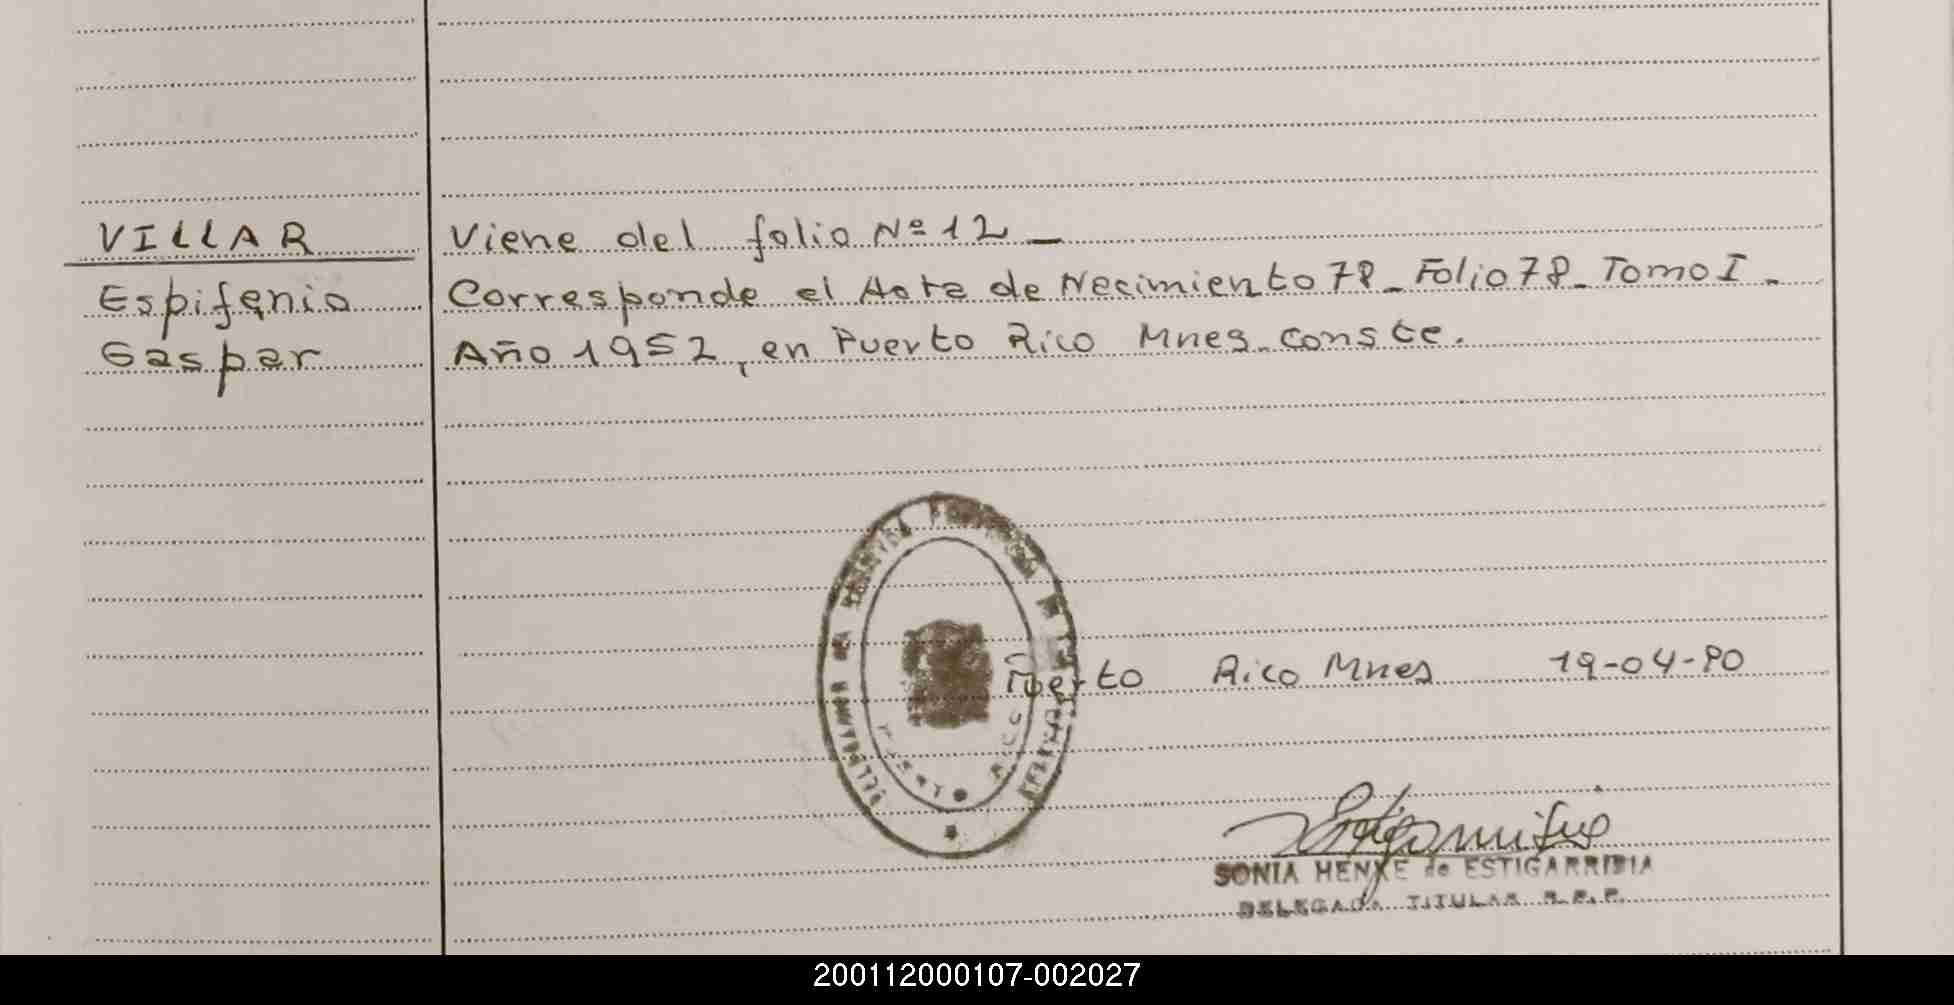 VILLAR
Espifanio
Gaspar
Viene del folio Nº 12 _
Corresponde el Acta de Necimiento 78_ Folio 78_ Tomo I _
Año 1952, en Puerto Rico Mnes. conste.
PUERTO RICO
Puerto Rico Mnes 19-04-80
SONIA HENKE de ESTIGARRIBIA
DELEGADA TITULAR R.P.P.
200112000107-002027